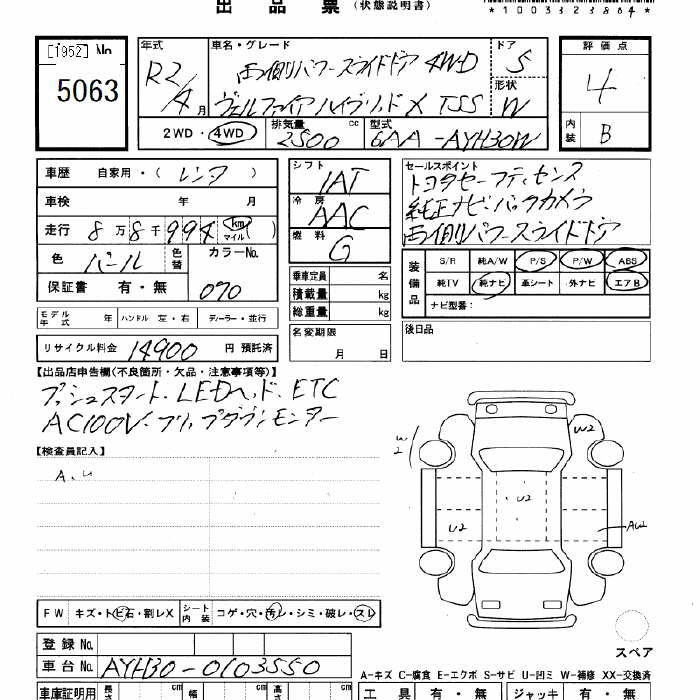 出品票（状態説明書）
*1003323884*
[1952] No
5063
年式 車名・グレード ドア 評価点
R2/4月 両側パワースライドドア 4WD 5
ヴェルファイアハイブリッドX TSS 形状 W 4
2WD・4WD 排気量 2500 cc 型式 6AA-AYH30W 内装 B
車歴 自家用・( レンタ )
車検 年 月
走行 8万8千994 km マイル
色 パール 色替 カラーNo.
保証書 有・無 070
シフト IAT
冷房 AAC
燃料 G
乗車定員 名
積載量 kg
総重量 kg
セールスポイント
トヨタセーフティセンス
純正ナビ・バックカメラ
両側パワースライドドア
装備品 S/R 純A/W P/S P/W ABS
純TV 純ナビ 革シート 外ナビ エアB
ナビ型番：
モデル年式 年 ハンドル 左・右 ディーラー・並行
名変期限 月 日
後日品
リサイクル料金 14900 円 預託済
【出品店申告欄(不良箇所・欠品・注意事項等)】
プッシュスタート、LEDヘッド、ETC
AC100V・フリップダウンモニター
【検査員記入】
A、U
W2
W2
U2
U2
AW2
FW キズ・トビ石・割レX シート内装 コゲ・穴・汚レ・シミ・破レ・スレ
スペア
登録No.
車台No. AYH30-0103550
A-キズ C-腐食 E-エクボ S-サビ U-凹ミ W-補修 XX-交換済
車庫証明用 長さ cm 幅 cm 高さ cm 工具 有・無 ジャッキ 有・無